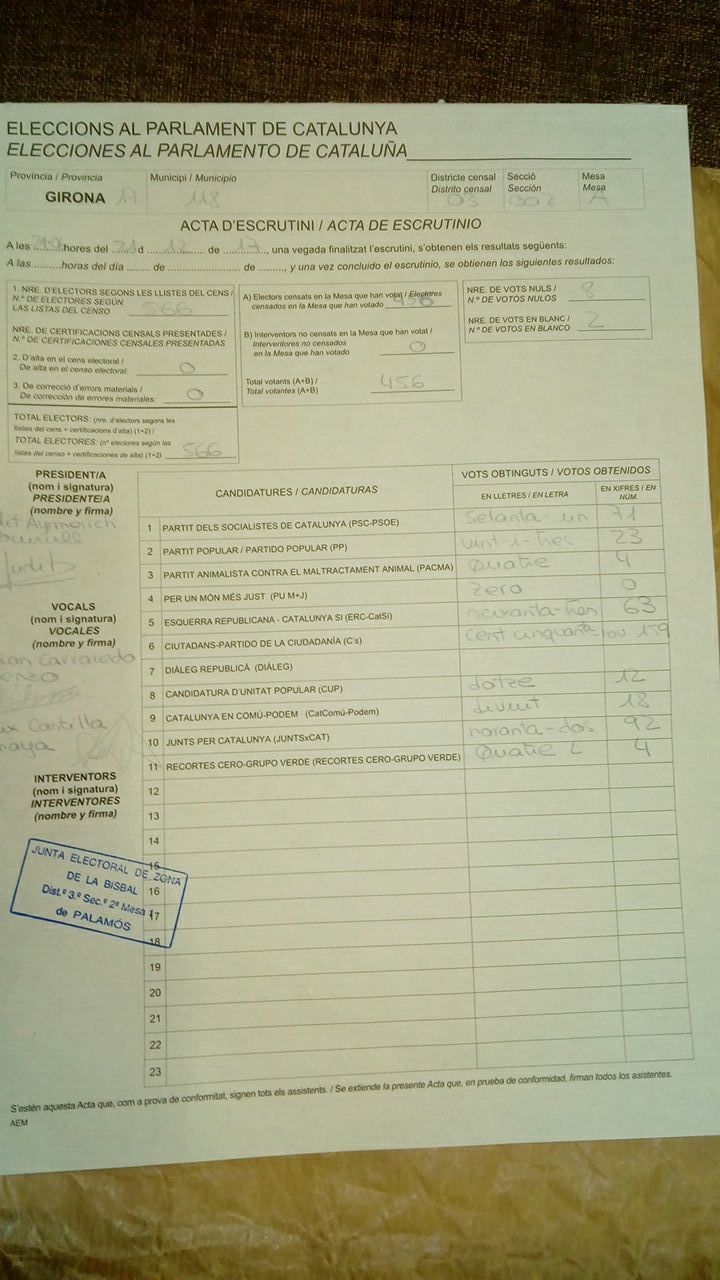 ELECCIONS AL PARLAMENT DE CATALUNYA
ELECCIONES AL PARLAMENTO DE CATALUÑA
Província / Provincia Municipi / Municipio Districte censal Secció Mesa
Distrito censal Sección Mesa
GIRONA 17 118 03 002 A
ACTA D'ESCRUTINI / ACTA DE ESCRUTINIO
A les ........hores del 21 d 12 de 17, una vegada finalitzat l'escrutini, s'obtenen els resultats següents:
A las .........horas del día ....... de ....................... de ........, y una vez concluido el escrutinio, se obtienen los siguientes resultados:
1. NRE. D'ELECTORS SEGONS LES LLISTES DEL CENS /
N.º DE ELECTORES SEGÚN
LAS LISTAS DEL CENSO 566
NRE. DE CERTIFICACIONS CENSALS PRESENTADES /
N.º DE CERTIFICACIONES CENSALES PRESENTADAS
2. D'alta en el cens electoral /
De alta en el censo electoral: 0
3. De correcció d'errors materials /
De corrección de errores materiales: 0
TOTAL ELECTORS: (nre. d'electors segons les
llistes del cens + certificacions d'alta) (1+2) /
TOTAL ELECTORES: (nº electores según las
listas del censo + certificaciones de alta) (1+2) 566
A) Electors censats en la Mesa que han votat / Electores
censados en la Mesa que han votado 456
B) Interventors no censats en la Mesa que han votat /
Interventores no censados
en la Mesa que han votado 0
Total votants (A+B) /
Total votantes (A+B) 456
NRE. DE VOTS NULS /
N.º DE VOTOS NULOS 8
NRE. DE VOTS EN BLANC /
N.º DE VOTOS EN BLANCO 2
PRESIDENT/A
(nom i signatura)
PRESIDENTE/A
(nombre y firma)
Aymerich
Judit
VOCALS
(nom i signatura)
VOCALES
(nombre y firma)
Carracedo
Castilla
INTERVENTORS
(nom i signatura)
INTERVENTORES
(nombre y firma)
CANDIDATURES / CANDIDATURAS VOTS OBTINGUTS / VOTOS OBTENIDOS
EN LLETRES / EN LETRA EN XIFRES / EN NÚM.
1 PARTIT DELS SOCIALISTES DE CATALUNYA (PSC-PSOE) Setanta-un 71
2 PARTIT POPULAR / PARTIDO POPULAR (PP) vint-i-tres 23
3 PARTIT ANIMALISTA CONTRA EL MALTRACTAMENT ANIMAL (PACMA) Quatre 4
4 PER UN MÓN MÉS JUST (PU M+J) Zero 0
5 ESQUERRA REPUBLICANA - CATALUNYA SÍ (ERC-CatSí) 63
6 CIUTADANS-PARTIDO DE LA CIUDADANÍA (C´s) Cent cinquanta nou 159
7 DIÀLEG REPUBLICÀ (DIÀLEG)
8 CANDIDATURA D'UNITAT POPULAR (CUP) dotze 12
9 CATALUNYA EN COMÚ-PODEM (CatComú-Podem) divuit 18
10 JUNTS PER CATALUNYA (JUNTSxCAT) noranta-dos 92
11 RECORTES CERO-GRUPO VERDE (RECORTES CERO-GRUPO VERDE) Quatre 4
12
13
14
15
16
17
18
19
20
21
22
23
JUNTA ELECTORAL DE ZONA
DE LA BISBAL
Dist.º 3.º Sec.º 2ª Mesa
de PALAMÓS
S'estén aquesta Acta que, com a prova de conformitat, signen tots els assistents. / Se extiende la presente Acta que, en prueba de conformidad, firman todos los asistentes.
AEM